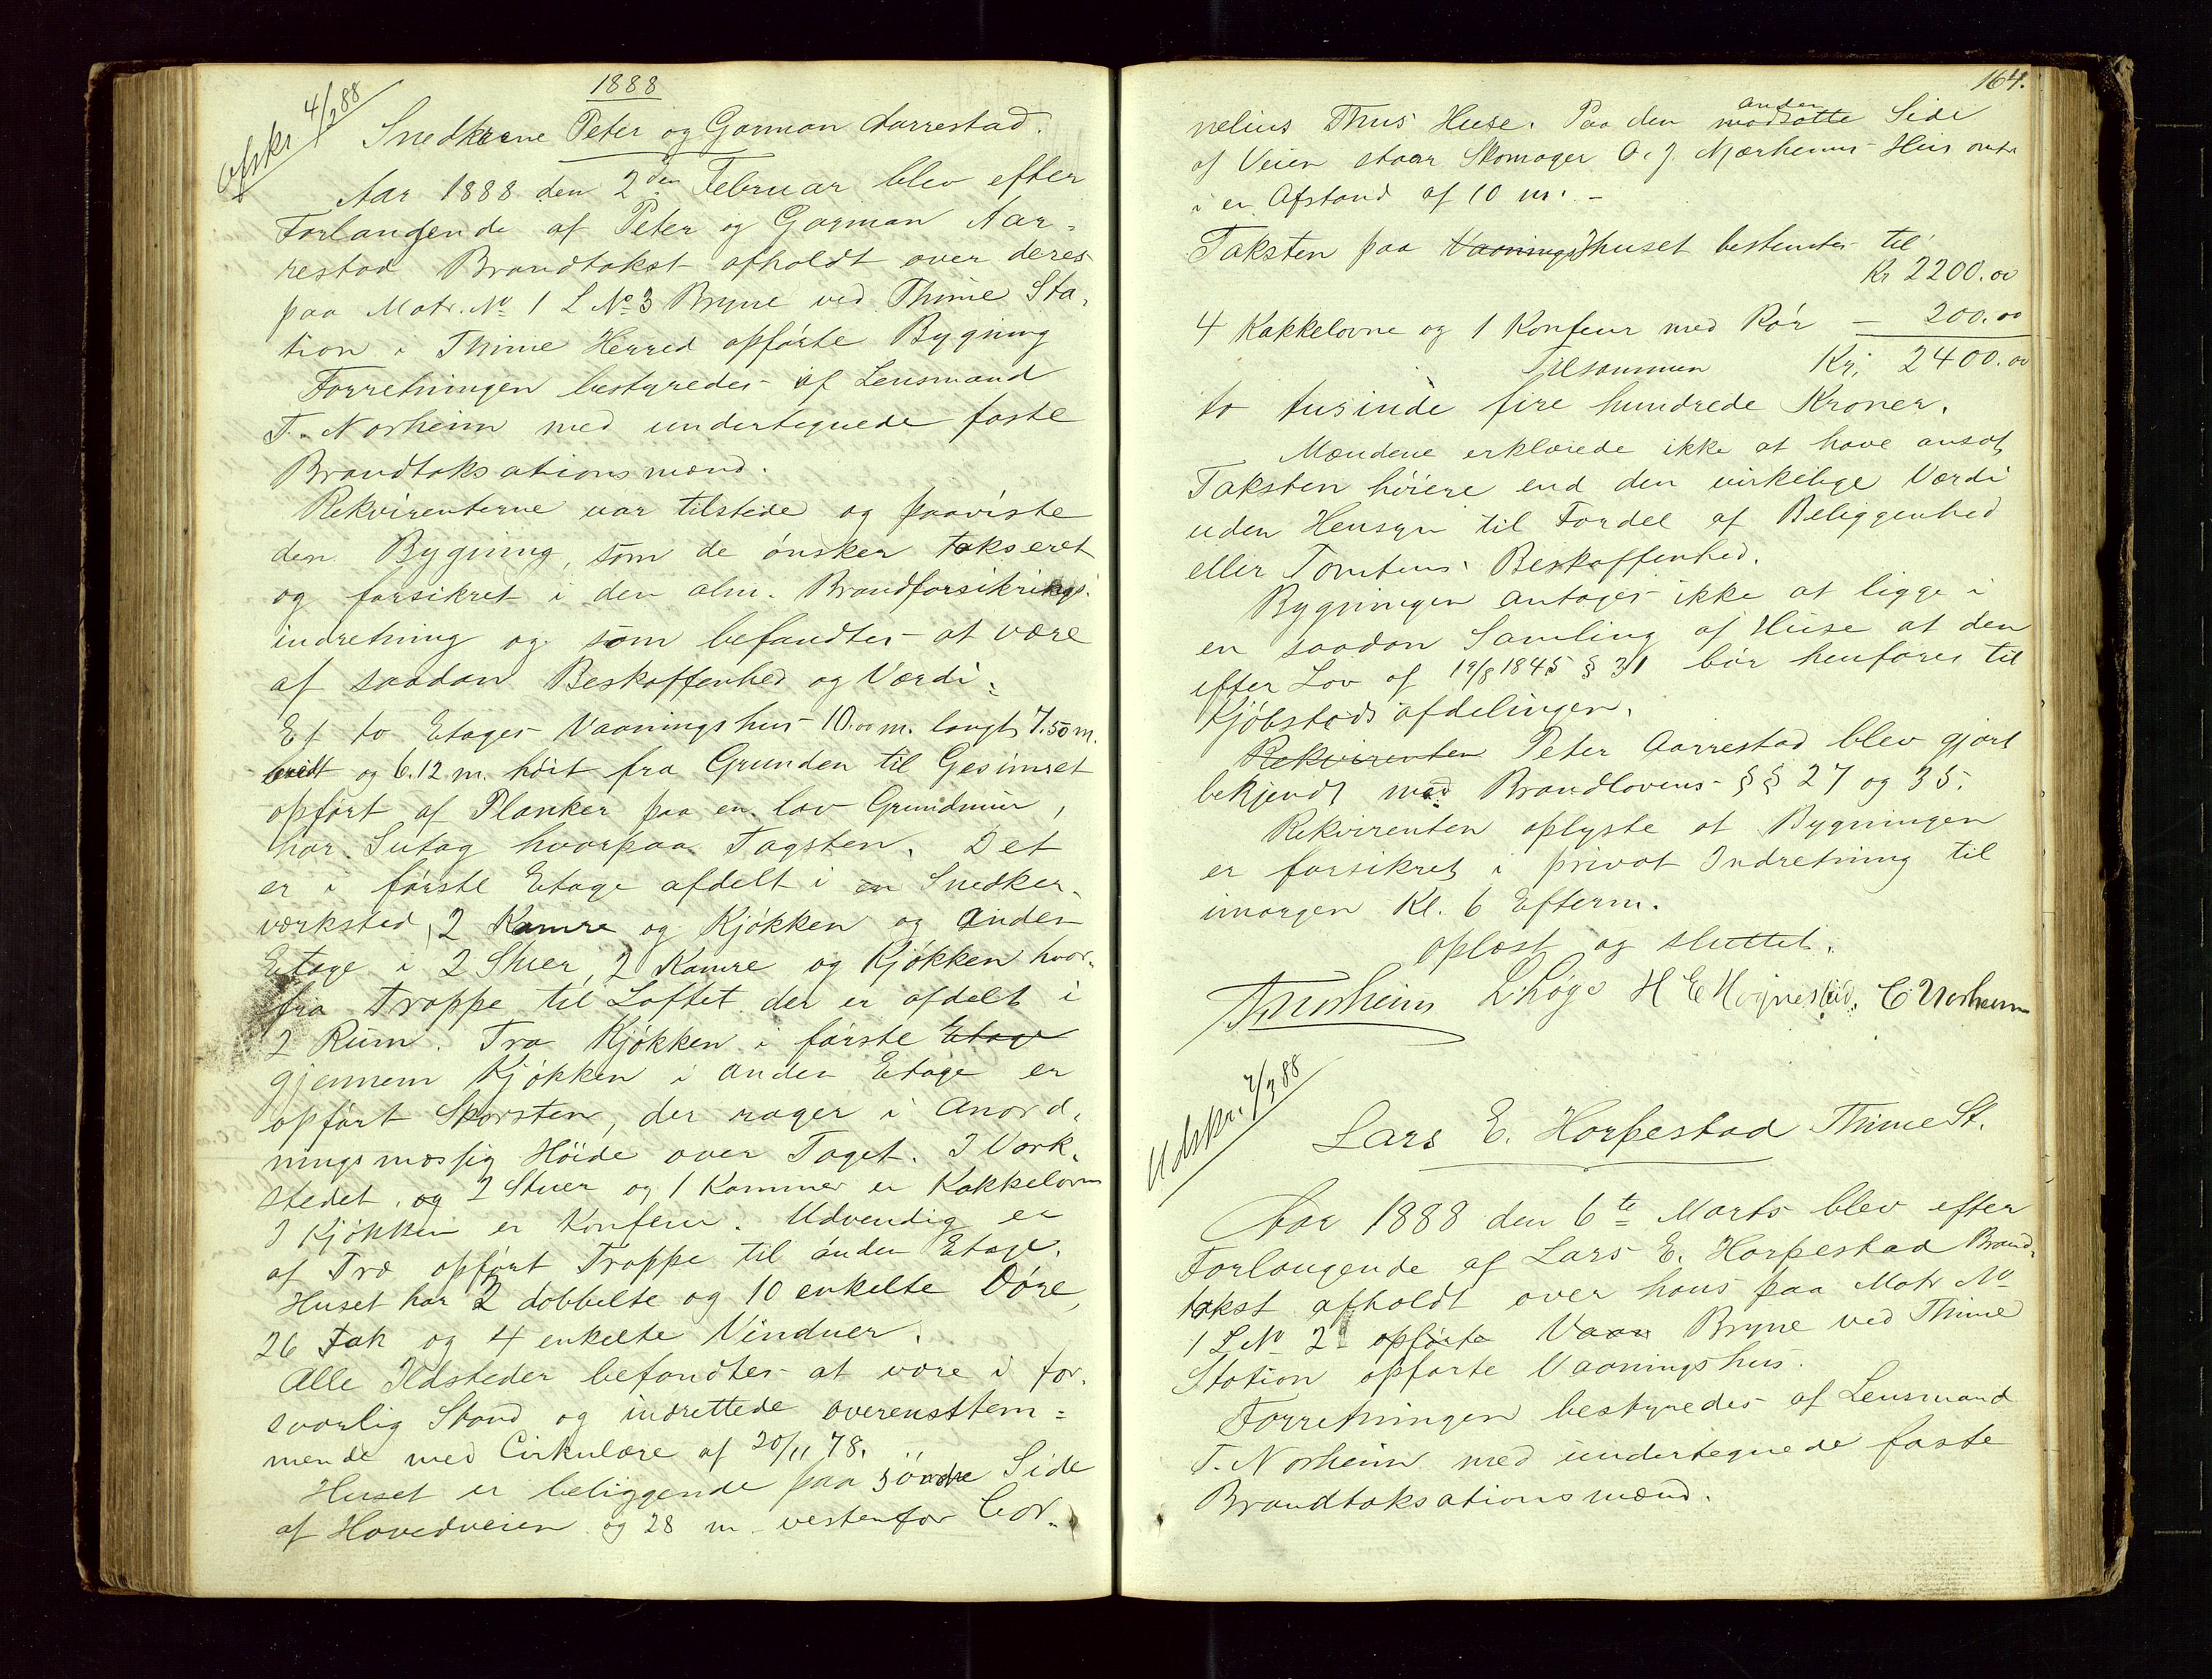 1888
Afskr 4/2 88
Snedkerne Peter og Garman Aarrestad.
Aar 1888 den 2den Februar blev efter
Forlangende af Peter og Garman Aar-
restad Brandtakst afholdt over deres
paa Matr. No 1 L No 3 Bryne ved Thime Sta-
tion i Thime Herred opførte Bygning
Forretningen bestyredes af Lensmand
T. Norheim med undertegnede faste
Brandtaksationsmænd.
Rekvirenterne var tilstede og paaviste
den Bygning, som de ønsker takseret
og forsikret i den alm. Brandforsikrings-
indretning og som befandtes at være
af saadan Beskaffenhed og Værdi:
Et to Etages Vaaningshus 10.00 m. langt, 7.50 m.
bredt og 6.12 m. høit fra Grunden til Gesimset
opført af Planker paa en lav Grundmur,
har Sutag hvorpaa Tagsten. Det
er i første Etage afdelt i en Snedker-
værksted, 2 Kamre og Kjøkken og anden
Etage i 2 Stuer, 2 Kamre og Kjøkken hvor-
fra Trappe til Loftet der er afdelt i
2 Rum. Fra Kjøkken i første Etage
gjennem Kjøkken i anden Etage er
opført Skorsten, der rager i anord-
ningsmæssig Høide over Taget. I Værk-
stedet og 2 Stuer og 1 Kammer er Kakkelovn
I Kjøkken er Komfeur. Udvendig er
af Træ opført Trappe til anden Etage.
Huset har 2 dobbelte og 10 enkelte Døre,
26 Fak og 4 enkelte Vinduer.
Alle Ildsteder befandtes at være i for-
svarlig Stand og indrettede overenstem-
mende med Cirkulære af 20/11 78.
Huset er beliggende paa søndre Side
af Hovedveien og 28 m. vestenfor Cor-
164.
nelius Thus Huse. Paa den modsatte anden Side
af Veien staar Skomager O. J. Nærheims Hus omtr
i en Afstand af 10 m. -
Taksten paa Vaaningshuset bestemtes til
Kr 2200.00
4 Kakkelovne og 1 Komfeur med Rør - 200.00
Tilsammen Kr. 2400.00
to tusinde fire hundrede Kroner.
Mændene erklærede ikke at have ansat
Taksten høiere end den virkelige Værdi
uden Hensyn til Fordel af Beliggenhed
eller Tomtens Beskaffenhed.
Bygningen antages ikke at ligge i
en saadan Samling af Huse at den
efter Lov af 19/8 1845 § 31 bør henføres til
Kjøbstadsafdelingen.
Rekvirenten Peter Aarrestad blev gjort
bekjendt med Brandlovens §§ 27 og 35.
Rekvirenten oplyste at Bygningen
er forsikret i privat Indretning til
imorgen Kl. 6 Efterm.
Oplæst og sluttet.
T Norheim L Høge H E Høgnestad. C Norheim
Udskr. 7/3 88
Lars E. Horpestad Thime St.
Aar 1888 den 6te Marts blev efter
Forlangende af Lars E. Horpestad Brand-
takst afholdt over hans paa Matr No
1 L No 2 opførte Vaan Bryne ved Thime
Station opførte Vaaningshus.
Forretningen bestyredes af Lensmand
T. Norheim med undertegnede faste
Brandtaksationsmænd.